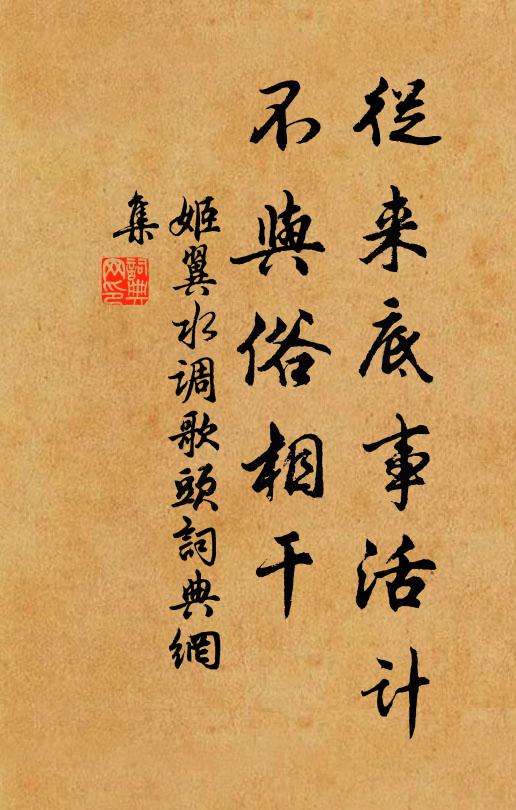 從来底事活计
不與俗相干
姬翼水调歌頭詞典網
集
詞典
网印